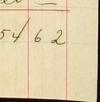 54/ 6 2